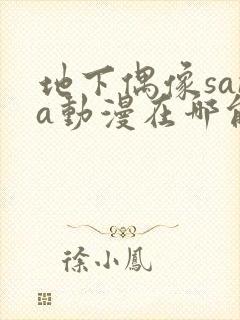 地下偶像sa
a動漫在哪
徐小鳳